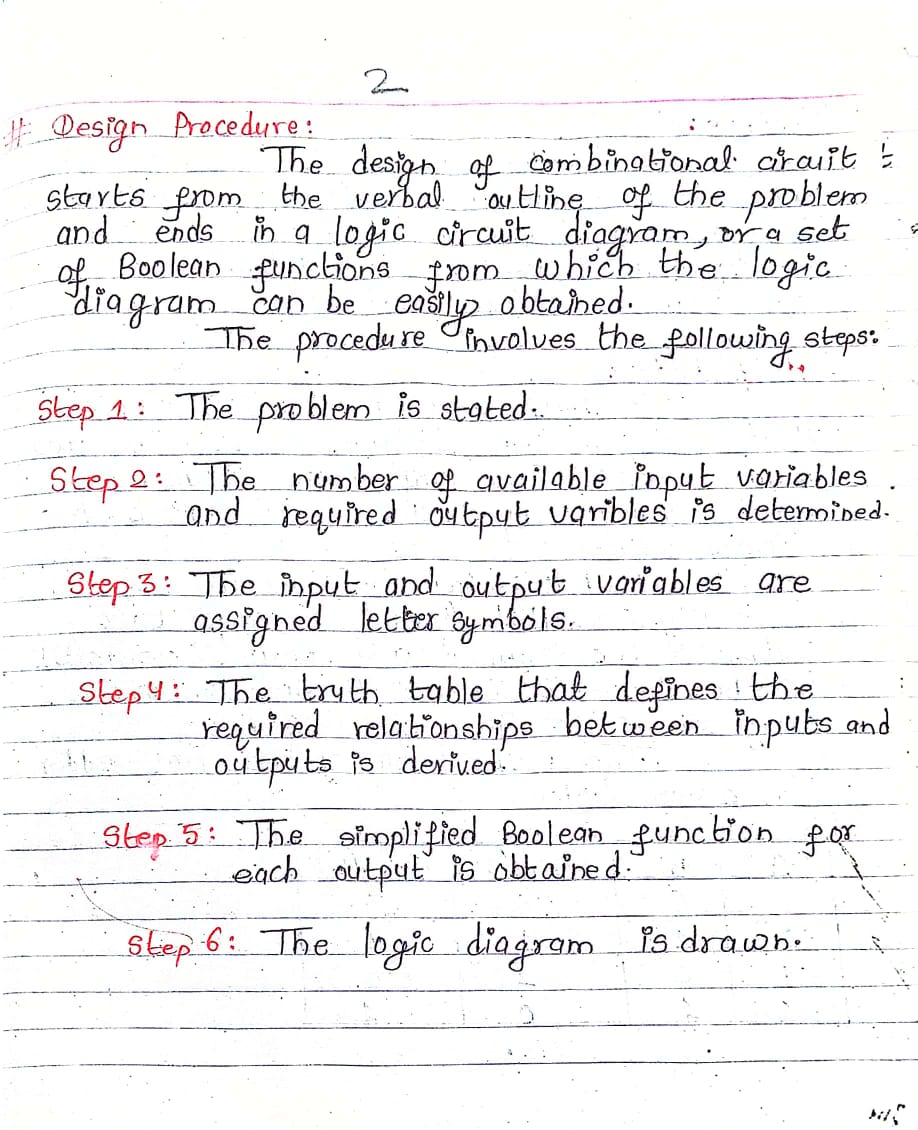 2
# Design Procedure:
The design of combinational circuit
starts from the verbal outline of the problem
and ends in a logic circuit diagram, or a set
of Boolean functions from which the logic
diagram can be easily obtained.
The procedure involves the following steps:
Step 1: The problem is stated.
Step 2: The number of available input variables
and required output varibles is determined.
Step 3: The input and output variables are
assigned letter symbols.
Step 4: The truth table that defines the
required relationships between inputs and
outputs is derived.
Step 5: The simplified Boolean function for
each output is obtained.
Step 6: The logic diagram is drawn.